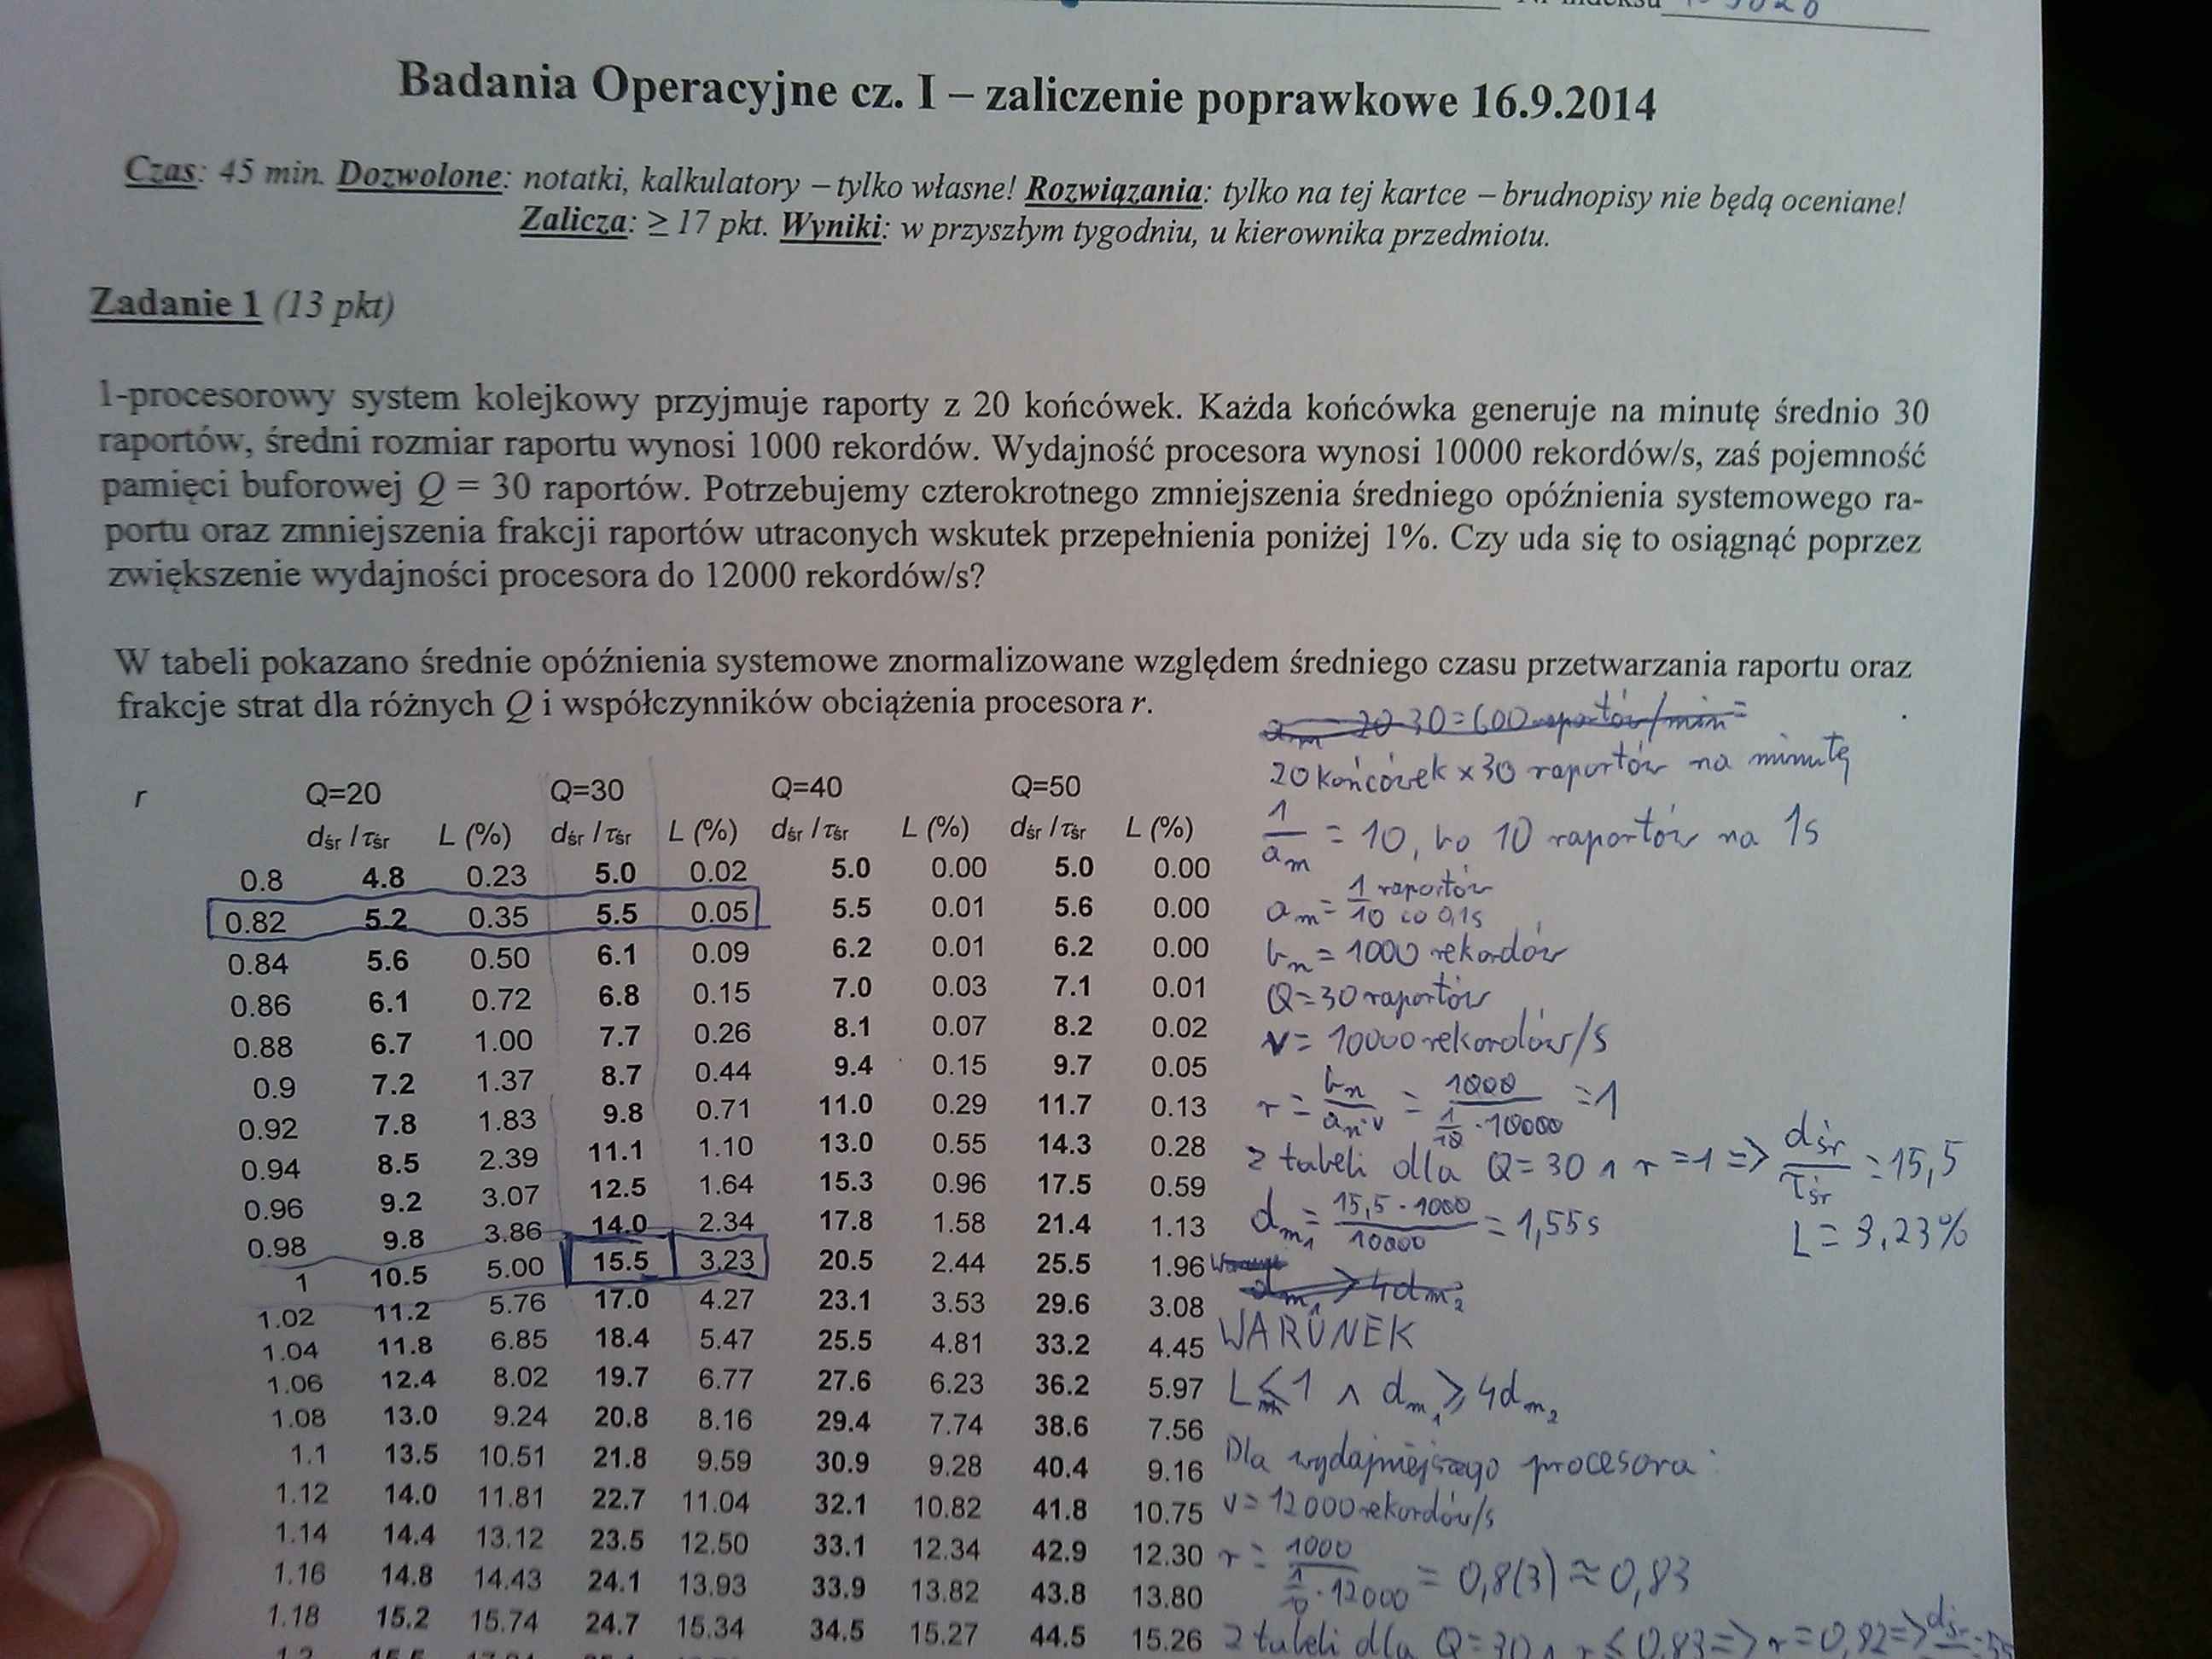 Nr indeksu
Badania Operacyjne cz. I – zaliczenie poprawkowe 16.9.2014
Czas: 45 min. Dozwolone: notatki, kalkulatory – tylko własne! Rozwiązania: tylko na tej kartce – brudnopisy nie będą oceniane!
Zalicza: ≥ 17 pkt. Wyniki: w przyszłym tygodniu, u kierownika przedmiotu.
Zadanie 1 (13 pkt)
1-procesorowy system kolejkowy przyjmuje raporty z 20 końcówek. Każda końcówka generuje na minutę średnio 30
raportów, średni rozmiar raportu wynosi 1000 rekordów. Wydajność procesora wynosi 10000 rekordów/s, zaś pojemność
pamięci buforowej Q = 30 raportów. Potrzebujemy czterokrotnego zmniejszenia średniego opóźnienia systemowego ra-
portu oraz zmniejszenia frakcji raportów utraconych wskutek przepełnienia poniżej 1%. Czy uda się to osiągnąć poprzez
zwiększenie wydajności procesora do 12000 rekordów/s?
W tabeli pokazano średnie opóźnienia systemowe znormalizowane względem średniego czasu przetwarzania raportu oraz
frakcje strat dla różnych Q i współczynników obciążenia procesora r.
r Q=20 Q=30 Q=40 Q=50
dśr /τśr L (%) dśr /τśr L (%) dśr /τśr L (%) dśr /τśr L (%)
0.8 4.8 0.23 5.0 0.02 5.0 0.00 5.0 0.00
0.82 5.2 0.35 5.5 0.05 5.5 0.01 5.6 0.00
0.84 5.6 0.50 6.1 0.09 6.2 0.01 6.2 0.00
0.86 6.1 0.72 6.8 0.15 7.0 0.03 7.1 0.01
0.88 6.7 1.00 7.7 0.26 8.1 0.07 8.2 0.02
0.9 7.2 1.37 8.7 0.44 9.4 0.15 9.7 0.05
0.92 7.8 1.83 9.8 0.71 11.0 0.29 11.7 0.13
0.94 8.5 2.39 11.1 1.10 13.0 0.55 14.3 0.28
0.96 9.2 3.07 12.5 1.64 15.3 0.96 17.5 0.59
0.98 9.8 3.86 14.0 2.34 17.8 1.58 21.4 1.13
1 10.5 5.00 15.5 3.23 20.5 2.44 25.5 1.96
1.02 11.2 5.76 17.0 4.27 23.1 3.53 29.6 3.08
1.04 11.8 6.85 18.4 5.47 25.5 4.81 33.2 4.45
1.06 12.4 8.02 19.7 6.77 27.6 6.23 36.2 5.97
1.08 13.0 9.24 20.8 8.16 29.4 7.74 38.6 7.56
1.1 13.5 10.51 21.8 9.59 30.9 9.28 40.4 9.16
1.12 14.0 11.81 22.7 11.04 32.1 10.82 41.8 10.75
1.14 14.4 13.12 23.5 12.50 33.1 12.34 42.9 12.30
1.16 14.8 14.43 24.1 13.93 33.9 13.82 43.8 13.80
1.18 15.2 15.74 24.7 15.34 34.5 15.27 44.5 15.26
am = 20·30=600 raportów/min =
20 końcówek x 30 raportów na minutę
1/am = 10, bo 10 raportów na 1s
am = 1/10 raportów co 0,1s
bm = 1000 rekordów
Q=30 raportów
v = 10000 rekordów/s
r = bm/(am·v) = 1000/(1/10·10000) = 1
z tabeli dla Q=30 ∧ r=1 => dśr/τśr = 15,5
L = 3,23%
dm1 = 15,5·1000/10000 = 1,55s
dm1 > 4dm2
WARUNEK
L ≤ 1 ∧ dm1 ≥ 4dm2
Dla wydajniejszego procesora:
v = 12000 rekordów/s
r = 1000/(1/10·12000) = 0,8(3) ≈ 0,83
z tabeli dla Q=30 ∧ r ≤ 0,83 => r=0,82 => dśr